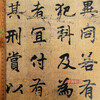 異同若有
犯科及為
者宜付有
其刑賞以